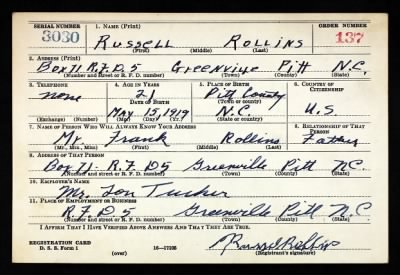 SERIAL NUMBER 1. NAME (Print) ORDER NUMBER
3030 RUSSELL ROLLINS 137
(First) (Middle) (Last)
2. ADDRESS (Print)
Box 71 R.F.D.5 Greenville Pitt N.C.
(Number and street or R. F. D. number) (Town) (County) (State)
3. TELEPHONE 4. AGE IN YEARS 5. PLACE OF BIRTH 6. COUNTRY OF CITIZENSHIP
none 21 Pitt County
DATE OF BIRTH (Town or county)
May 15, 1919 N.C. U.S
(Exchange) (No.) (Mo.) (Day) (Yr.) (State or country)
7. NAME OF PERSON WHO WILL ALWAYS KNOW YOUR ADDRESS 8. RELATIONSHIP OF THAT PERSON
Mr. Frank Rollins Father
(Mr., Mrs., Miss) (First) (Middle) (Last)
9. ADDRESS OF THAT PERSON
Box 71 - R.F.D5 Greenville Pitt N.C.
(Number and street or R. F. D. number) (Town) (County) (State)
10. EMPLOYER'S NAME
Mr. Tucker
11. PLACE OF EMPLOYMENT OR BUSINESS
R.F.D 5 Greenville Pitt N.C
(Number and street or R. F. D. number) (Town) (County) (State)
I AFFIRM THAT I HAVE VERIFIED ABOVE ANSWERS AND THAT THEY ARE TRUE.
REGISTRATION CARD
D. S. S. Form 1 16—17105 Russell Rollins
(over) (Registrant's signature)